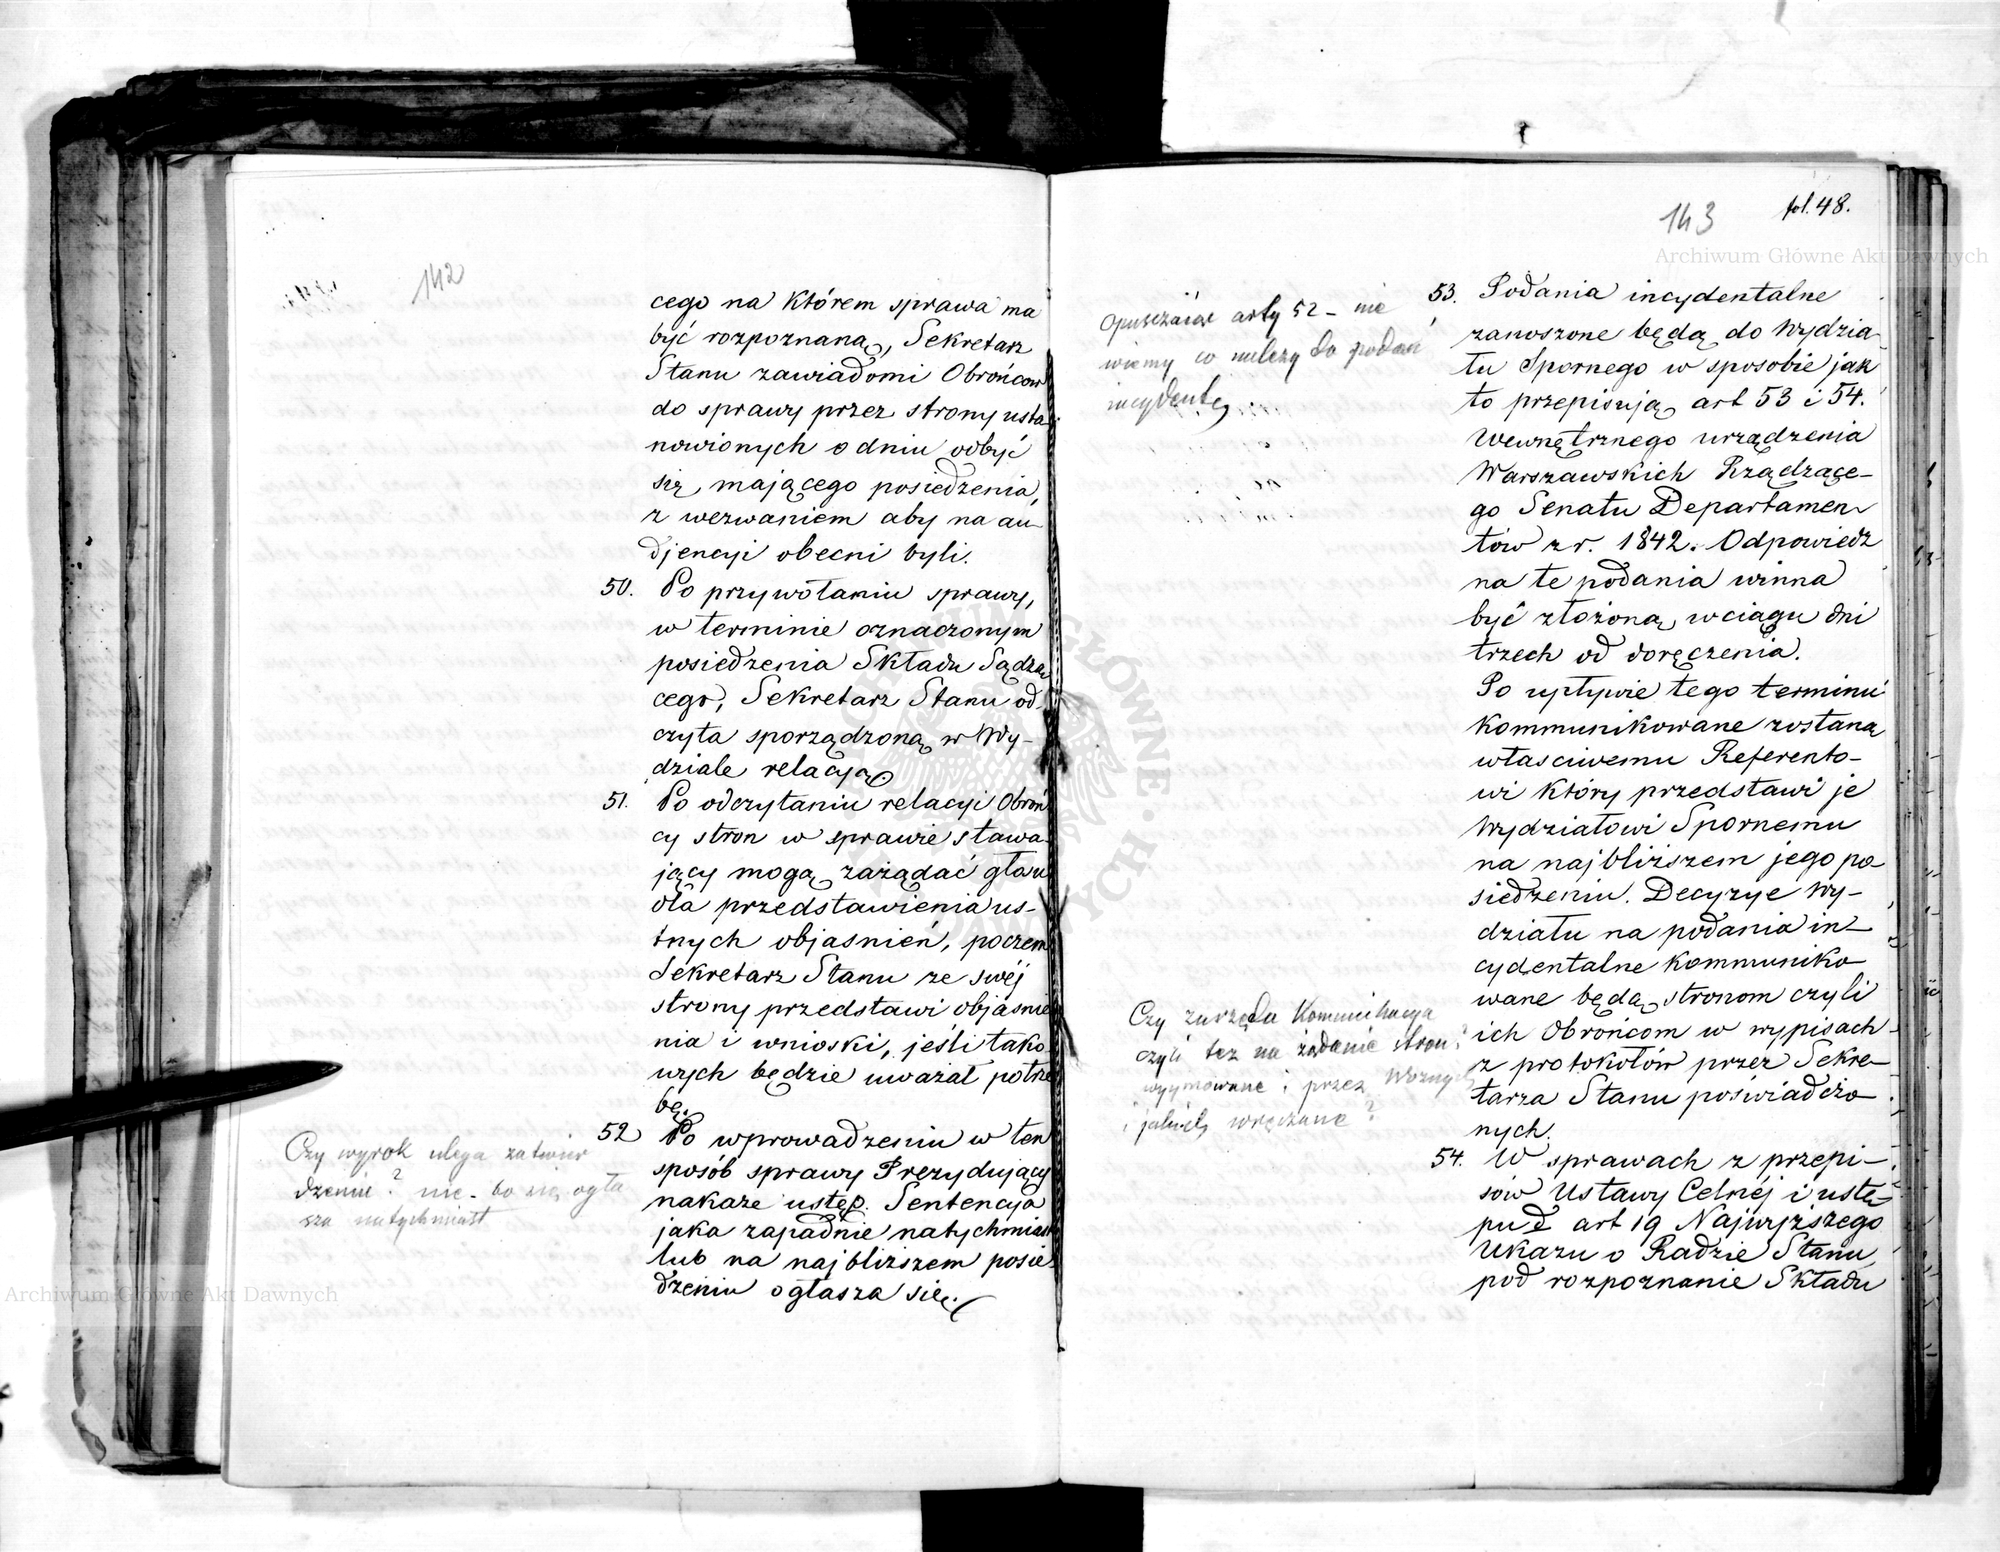 142
cego na którem sprawa ma
być rozpoznaną, Sekretarz
Stanu zawiadomi Obrońców
do sprawy przez strony usta
nowionych o dniu odbyć
się mającego posiedzenia,
z wezwaniem aby na au-
djencyi obecni byli.
50. Po przywołaniu sprawy,
w terminie oznaczonym
posiedzenia Składu Sądzą
cego, Sekretarz Stanu od-
czyta sporządzoną w Wy-
dziale relacyą.
51. Po odczytaniu relacyi Obroń
cy stron w sprawie stawa-
jący mogą zażądać głosu
dla przedstawienia us-
tnych objasnień, poczem
Sekretarz Stanu ze swéj
strony przedstawi objasnie
nia i wnioski, jeśli tako-
wych będzie uważał potrze
bę.
52 Po wprowadzeniu w ten
sposób sprawy Prezydujący
nakaże ustęp. Sentencya
jaka zapadnie natychmiast
lub na najbliższem posie
dzeniu ogłasza się.
Czy wyrok ulega zatwier
dzeniu? nie - bo się ogła
sza natychmiast
143 fol. 48.
opuszczając arty 52 - nie
wiemy co należy do podań
incydent.
53. Podania incydentalne
zanoszone będą do Wydzia-
łu Spornego w sposobie jak
to przepisują art 53 i 54.
Wewnętrznego urządzenia
Warszawskich Rządzące-
go Senatu Departamen
tów z r. 1842. Odpowiedz
na te podania winna
być złożoną w ciągu dni
trzech od doręczenia.
Po upływie tego terminu
kommunikowane zostaną
własciwemu Referento-
wi który przedstawi je
Wydziałowi Spornemu
na najbliższem jego po-
siedzeniu. Decyzye Wy-
działu na podania in-
cydentalne kommuniko-
wane będą stronom czyli
ich Obrońcom w wypisach
z protokołów przez Sekre-
tarza Stanu poświadczo-
nych.
Czy zarządu Komunikacja
czyli też na żądanie stron?
wyjmowane i przez Woznych
i jakich wręczane?
54. W sprawach z przepi-
sów Ustawy Celnéj i ustę-
pu d art 19 Najwyższego
Ukazu o Radzie Stanu,
pod rozpoznanie Składu
Archiwum Główne Akt Dawnych
Archiwum Główne Akt Dawnych